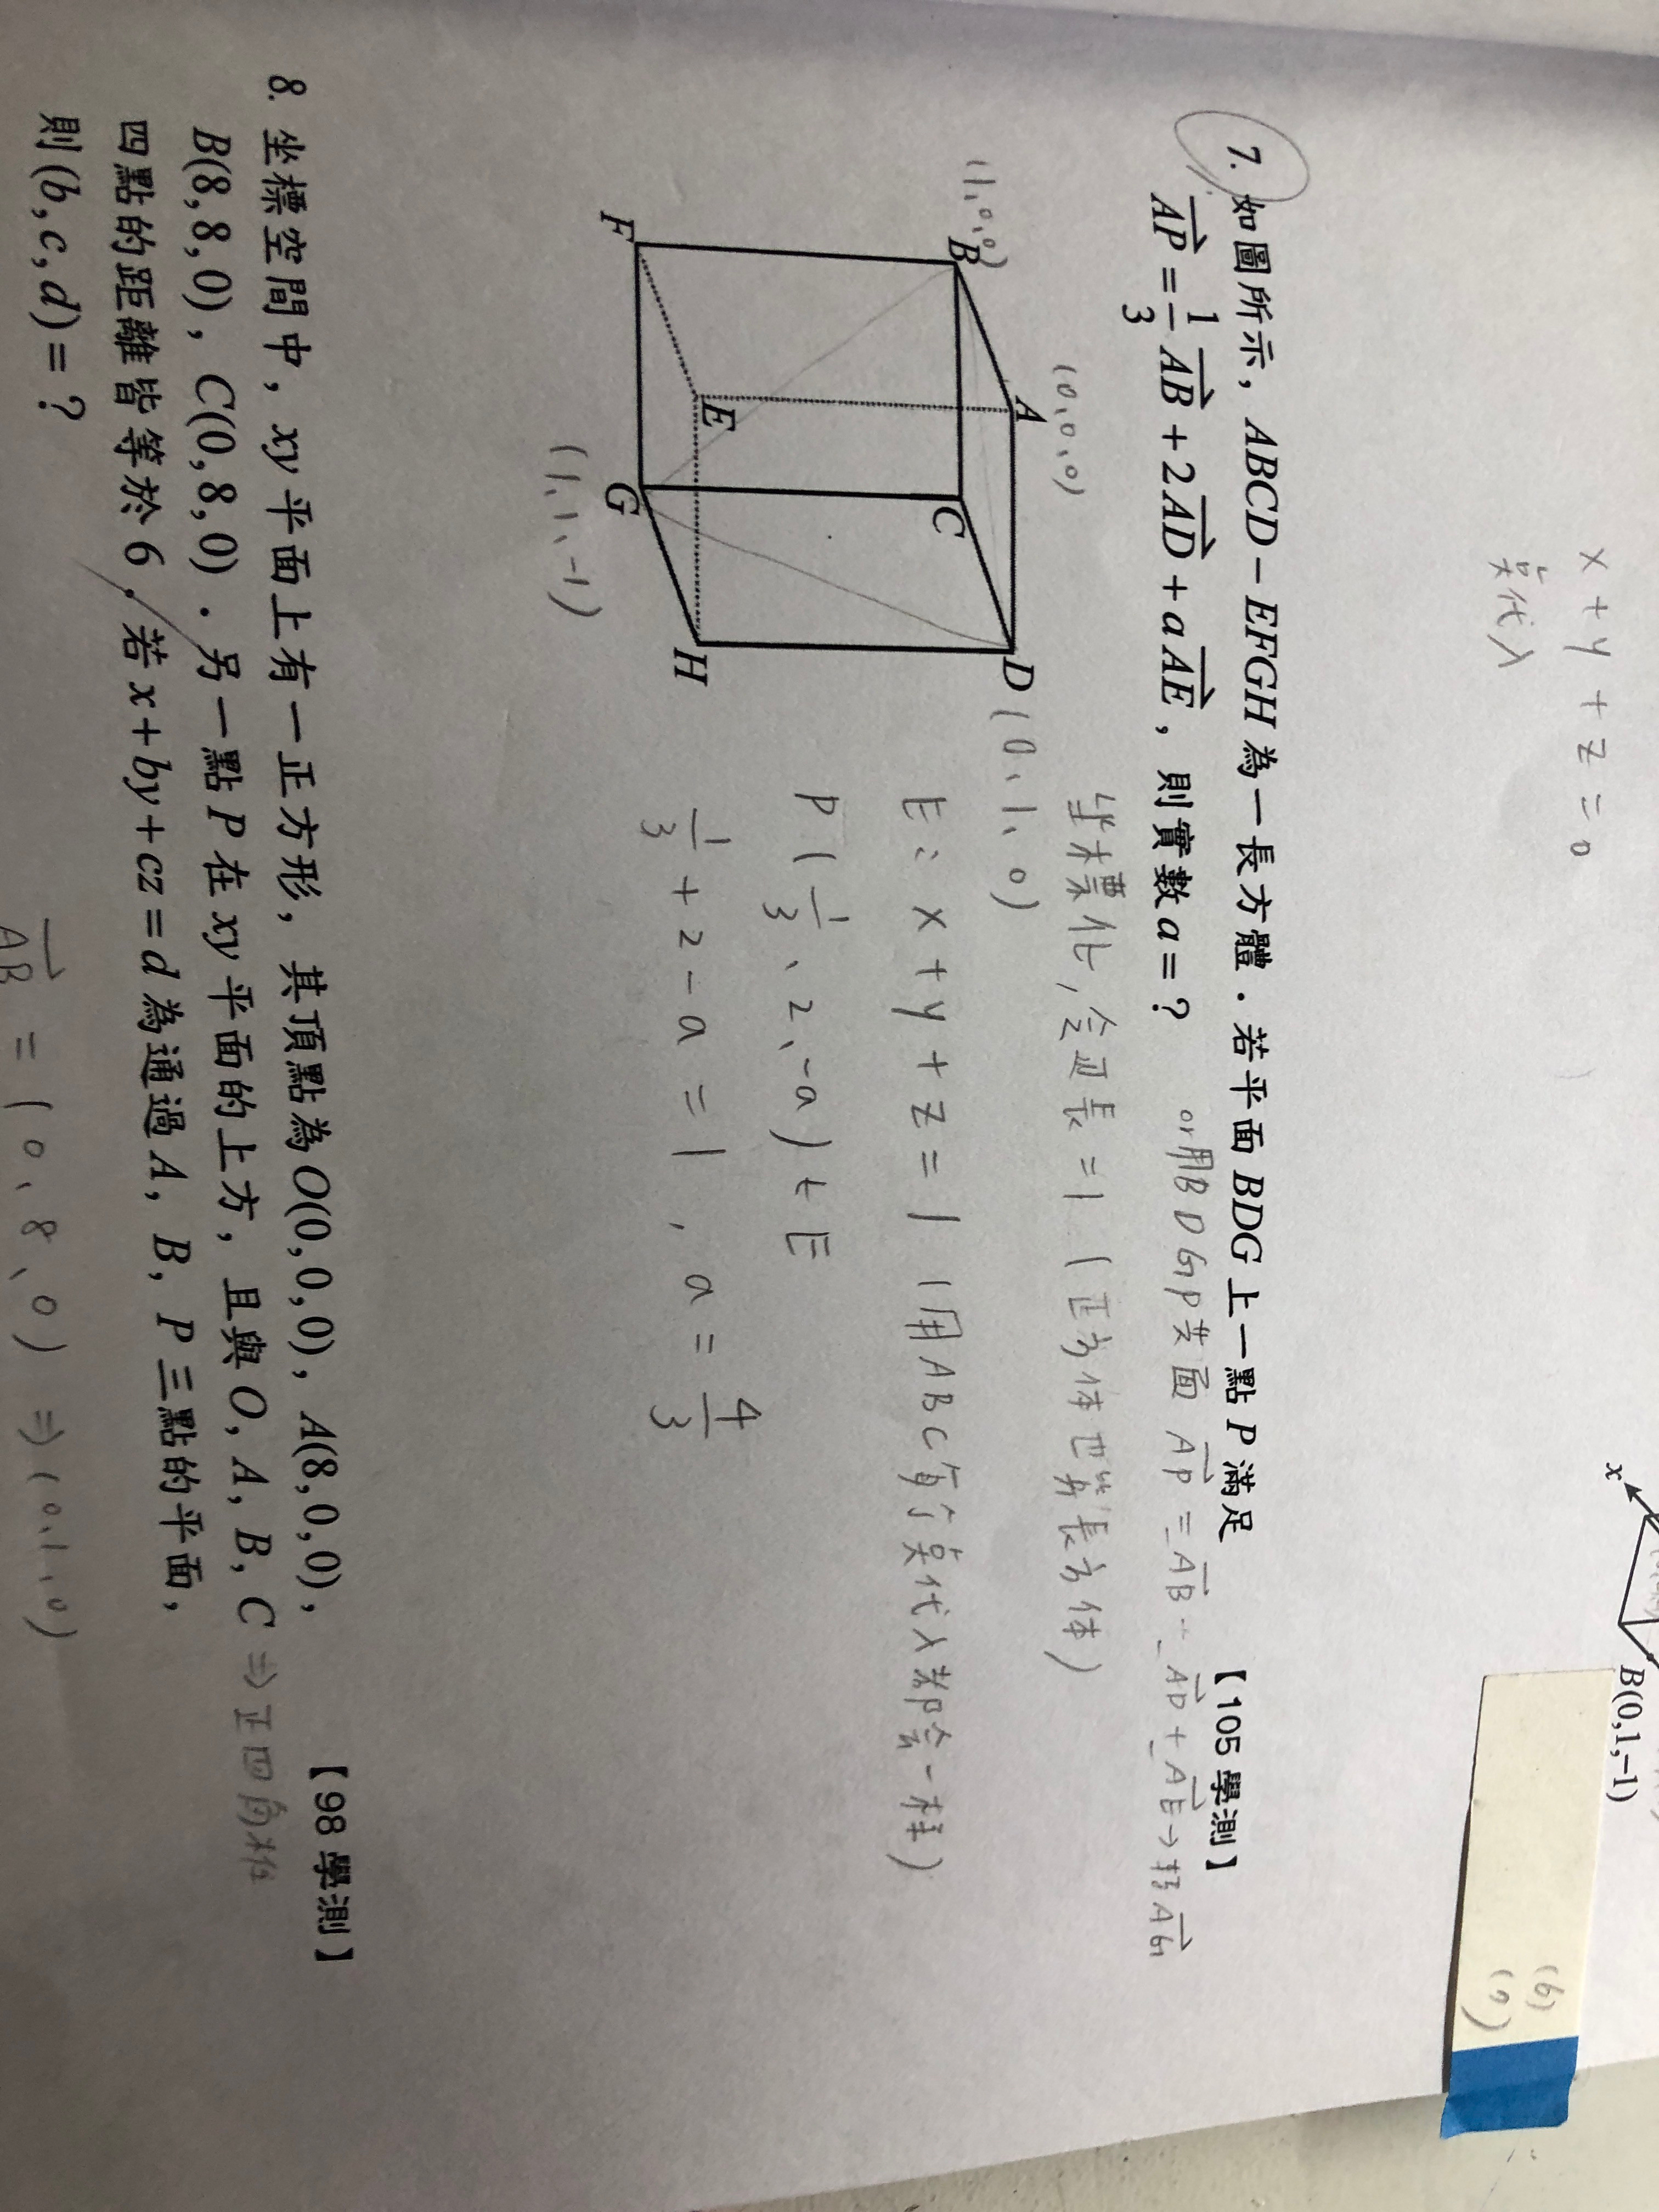 x + y + z = 0
點代入
x
B(0,1,-1)
(6)
(7)
7. 如圖所示，ABCD－EFGH 為一長方體．若平面 BDG 上一點 P 滿足
【105 學測】
AP = 1/3 AB + 2AD + aAE，則實數 a = ?
or用BDGP共面 AP = _AB + _AD + _AE → 拆AG
坐標化，令邊長 = 1 (正方体也算長方体)
(0,0,0)
A
(1,0,0)
B
C
D (0,1,0)
E
F
G
H
(1,1,-1)
E: x + y + z = 1 (用ABC每个點代入都会一樣)
P (1/3, 2, -a) ∈ E
1/3 + 2 - a = 1, a = 4/3
8. 坐標空間中，xy 平面上有一正方形，其頂點為 O(0,0,0)，A(8,0,0)，
【98 學測】
B(8,8,0)，C(0,8,0)．另一點 P 在 xy 平面的上方，且與 O, A, B, C ⇒ 正四角椎
四點的距離皆等於 6．若 x + by + cz = d 為通過 A，B，P 三點的平面，
則 (b,c,d) = ?
AB = (0, 8, 0) ⇒ (0,1,0)